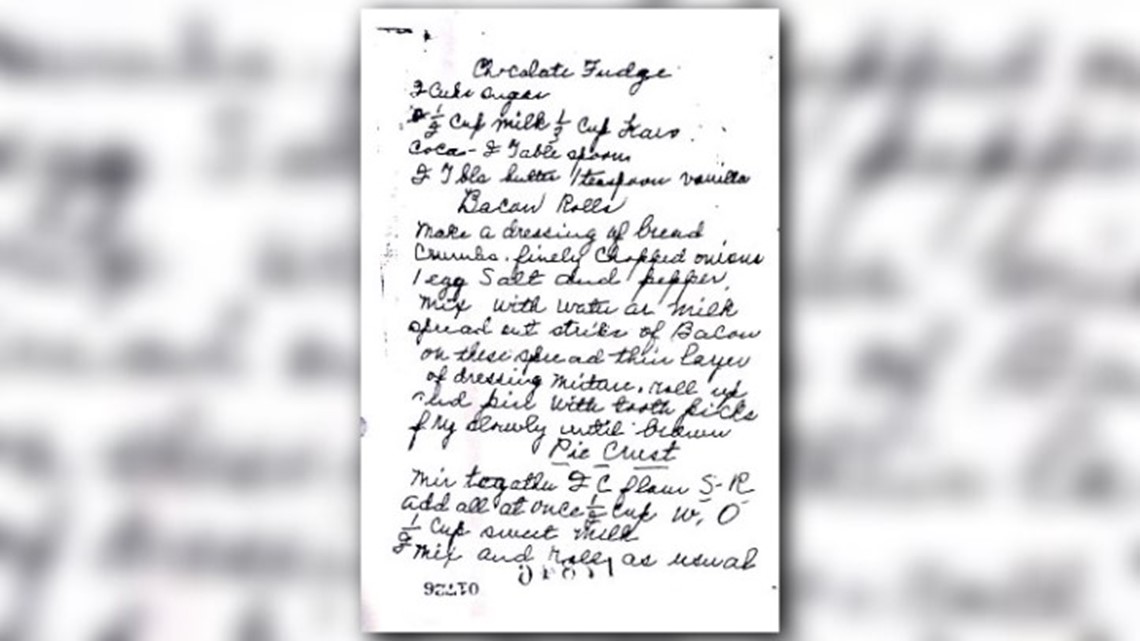 Chocolate Fudge
2 Cubs sugar
1/2 Cup milk 1/3 Cup Karo
Coca - 2 Table spoons
2 Tbls butter 1 teaspoon vanilla
Bacon Rolls
Make a dressing of bread
Crumbs. finely Chopped onions
1 egg Salt and pepper.
mix with water or milk
spread out strips of Bacon
on these spread thin layer
of dressing mixture. roll up
and pin with tooth picks
fry slowly until brown
Pie Crust
Mix together 2 C flour S-R
add all at once 1/2 Cup W. O
1/2 Cup sweet milk
mix and roll as usual
01726